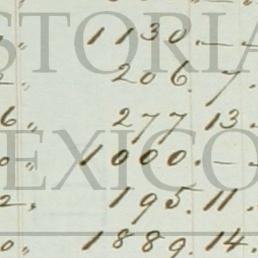 1130. — —
206. 7.
6,, 277 13.
0,, 1000. — —
2, 195. 11.
0,, 1889. 14.